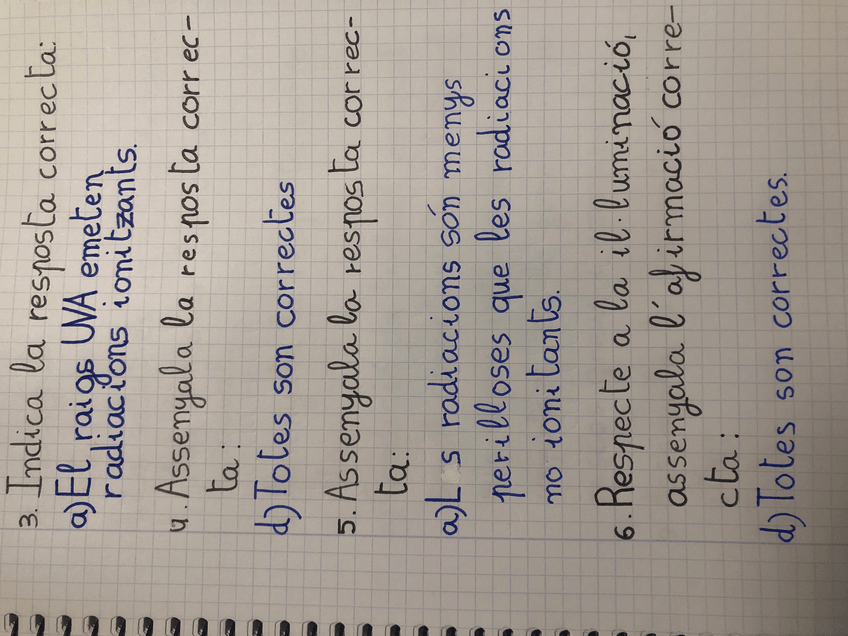 3. Indica la resposta correcta:
a) El raigs UVA emeten
radiacions ionitzants.
4. Assenyala la resposta correc-
ta:
d) Totes son correctes
5. Assenyala la resposta correc-
ta:
a) L s radiacions són menys
perilloses que les radiacions
no ionitants.
6. Respecte a la il·luminació,
assenyala l'afirmació corre-
cta:
d) Totes son correctes.